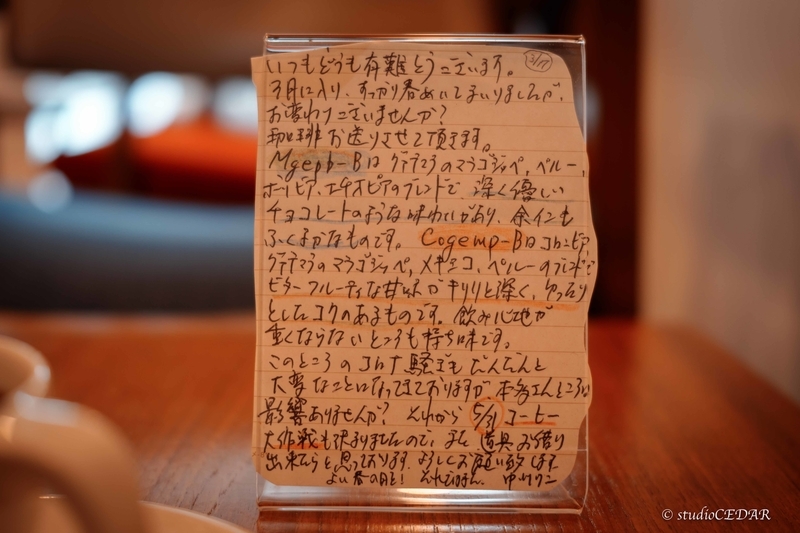 3/17
いつもどうも有難とうございます。
3月に入り、すっかり春めいてまいりましたが、
お変わりございませんか?
珈琲お送りさせて頂きます。
Mgepb-Bは グァテマラのマラゴジッペ、ペルー、
ボリビア、エチオピアのブレンドで 深く優しい
チョコレートのような味わいがあり、余インも
ふくよかなものです。 Cogemp-Bは コロンビア、
グァテマラのマラゴジッペ、メキシコ、ペルーのブレンドで
ビターフルーティな甘味がキリリと深く、ゆったり
としたコクのあるものです。飲み心地が
重くならないところも持ち味です。
このところのコロナ騒ぎも だんだんと
大変なことになってきておりますが 本多さんところは
影響ありませんか? それから 5/31 コーヒー
大作戦も決まりましたので、また 道具お借り
出来たらと思っております。よろしくお願い致します。
よい春の日を! それではまた。 中川ワニ
© studioCEDAR